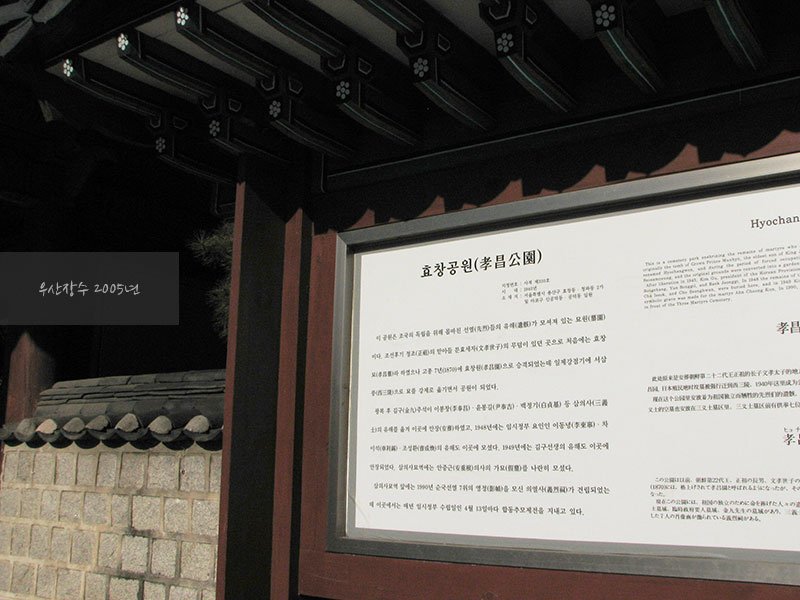 우산장수 2005년
효창공원(孝昌公園)
지정번호 : 사적 제330호
시 대 : 1940년
소 재 지 : 서울특별시 용산구 효창동 · 청파동 2가
및 마포구 신공덕동 · 공덕동 일원
이 공원은 조국의 독립을 위해 몸바친 선열(先烈)들의 유해(遺骸)가 모셔져 있는 묘원(墓園)
이다. 조선후기 정조(正祖)의 맏아들 문효세자(文孝世子)의 무덤이 있던 곳으로 처음에는 효창
묘(孝昌墓)라 하였으나 고종 7년(1870)에 효창원(孝昌園)으로 승격되었는데 일제강점기에 서삼
릉(西三陵)으로 묘를 강제로 옮기면서 공원이 되었다.
광복 후 김구(金九)주석이 이봉창(李奉昌) · 윤봉길(尹奉吉) · 백정기(白貞基) 등 삼의사(三義
士)의 유해를 옮겨 이곳에 안장(安葬)하였고, 1948년에는 임시정부 요인인 이동녕(李東寧) · 차
이석(車利錫) · 조성환(曺成煥)의 유해도 이곳에 모셨다. 1949년에는 김구선생의 유해도 이곳에
안장되었다. 삼의사묘역에는 안중근(安重根)의사의 가묘(假墓)를 나란히 모셨다.
삼의사묘역 앞에는 1990년 순국선열 7위의 영정(影幀)을 모신 의열사(義烈祠)가 건립되었는
데 이곳에서는 매년 임시정부 수립일인 4월 13일마다 합동추모제전을 지내고 있다.
Hyochan
This is a cemetery park enshrining the remains of martyrs who
originally the tomb of Crown Prince Munhyo, the eldest son of King
renamed Hyochangwon, and during the period of forced occupati
Seosamneung, and the original grounds were converted into a garden
After liberation in 1945, Kim Gu, president of the Korean Provision
Bongchang, Yun Bonggil, and Baek Jeonggi. In 1948 the remains of
Cha Iseok, and Cho Seonghwan, were buried here, and in 1949 K
symbolic grave was made for the martyr Ahn Chung Kun. In 1990,
in front of the Three Martyrs Cemetery.
孝昌
此处原来是安葬朝鲜第二十二代王正祖的长子文孝太子的地
昌园。日本殖民地时坟墓被强行迁到西三陵。1940年这里成为公
现在这个公园里安放着为祖国独立而牺牲的先烈们的遗骸。
义士的空墓也安放在三义士墓区里。三义士墓区前有供奉七位
ヒョチ
孝昌
この公園は以前、朝鮮第22代王、正祖の長男、文孝世子の
(1870)には、格上げされて孝昌園と呼ばれるようになったが、その
なった。
現在この公園には、祖国の独立のために命を捧げた人々の遺
士墓域、臨時政府要人墓域、金九先生の墓域があり、三義
した7人の肖像画が飾られている義烈祠がある。